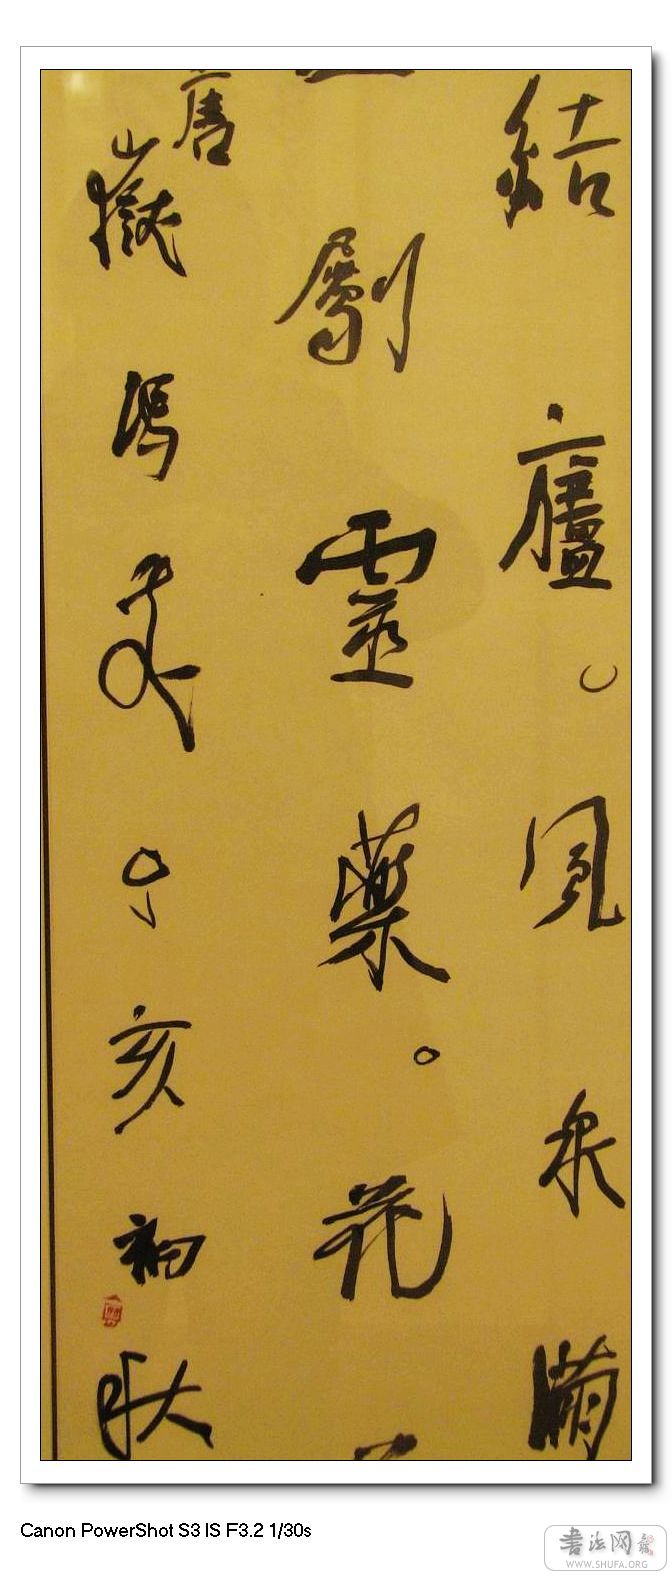 結廬。風泉滿
劚靈藥。花
嶽
丁亥初秋
Canon PowerShot S3 IS F3.2 1/30s
书法网
WWW.SHUFA.ORG